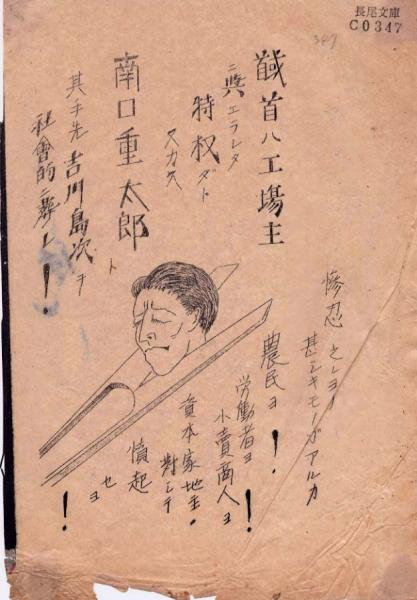 長尾文庫
C0347
347
馘首ハ工場主
ニ与エラレタ
特权ダト
ヌカス
南口重太郎
ト
其手先吉川島次ヲ
社會的ニ葬レ!
惨忍之レヨリ
甚シキモノガアルカ
農民ヨ!
労働者ヨ
小賣商人ヨ!
資本家地主・
對シテ
憤起
セヨ!